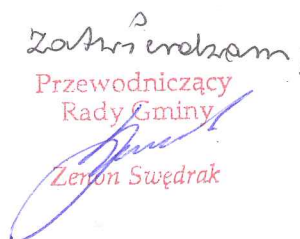 Zatwierdzam
Przewodniczący
Rady Gminy
Zenon Swędrak